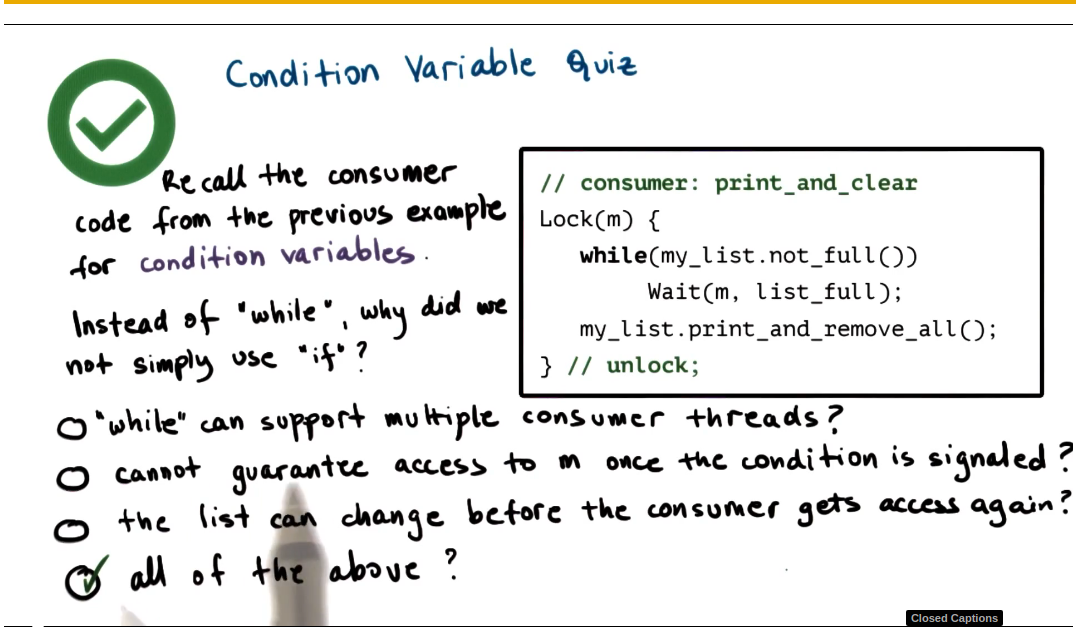 Condition Variable Quiz
Recall the consumer
code from the previous example
for condition variables.
Instead of "while", why did we
not simply use "if"?
// consumer: print_and_clear
Lock(m) {
while(my_list.not_full())
Wait(m, list_full);
my_list.print_and_remove_all();
} // unlock;
"while" can support multiple consumer threads?
cannot guarantee access to m once the condition is signaled?
the list can change before the consumer gets access again?
all of the above?
Closed Captions